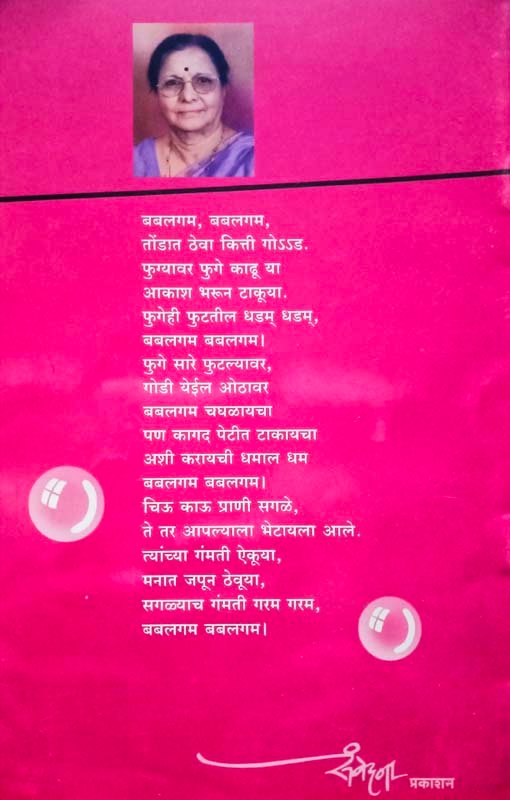 बबलगम, बबलगम,
तोंडात ठेवा कित्ती गोऽऽड.
फुग्यावर फुगे काढू या
आकाश भरून टाकूया.
फुगेही फुटतील धडम् धडम्,
बबलगम बबलगम।
फुगे सारे फुटल्यावर,
गोडी येईल ओठावर
बबलगम चघळायचा
पण कागद पेटीत टाकायचा
अशी करायची धमाल धम
बबलगम बबलगम।
चिऊ काऊ प्राणी सगळे,
ते तर आपल्याला भेटायला आले.
त्यांच्या गंमती ऐकूया,
मनात जपून ठेवूया,
सगळ्याच गंमती गरम गरम,
बबलगम बबलगम।
संवेदना प्रकाशन